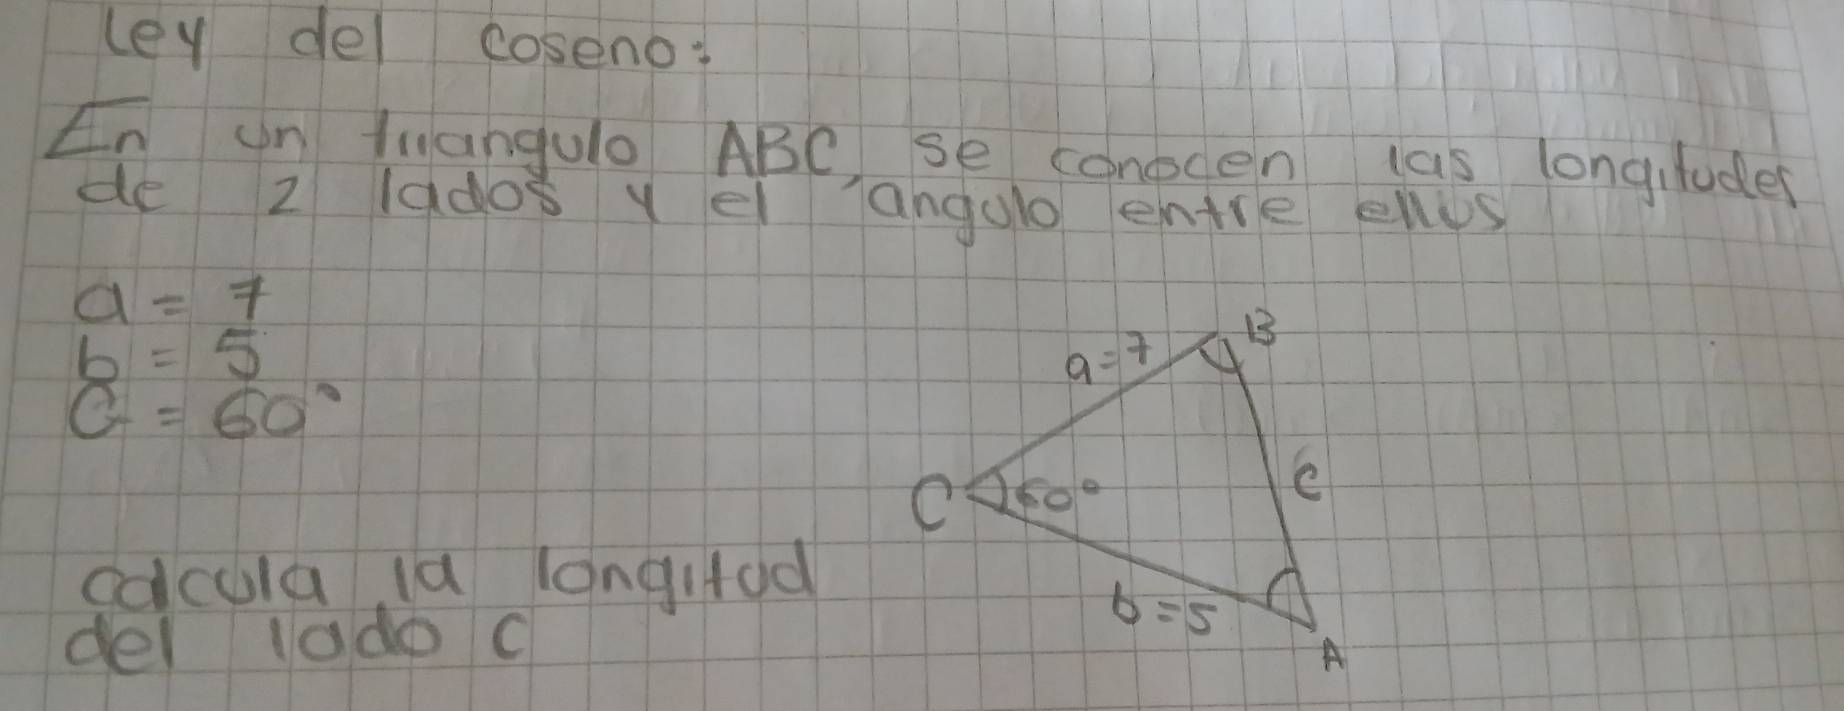 ley del coseno:
En un triangulo ABC, se conocen las longitudes
de 2 lados y el angulo entre ellos
a = 7
b = 5
C = 60°
a = 7
B
C 60°
c
b = 5
A
calcula la longitud
del lado c